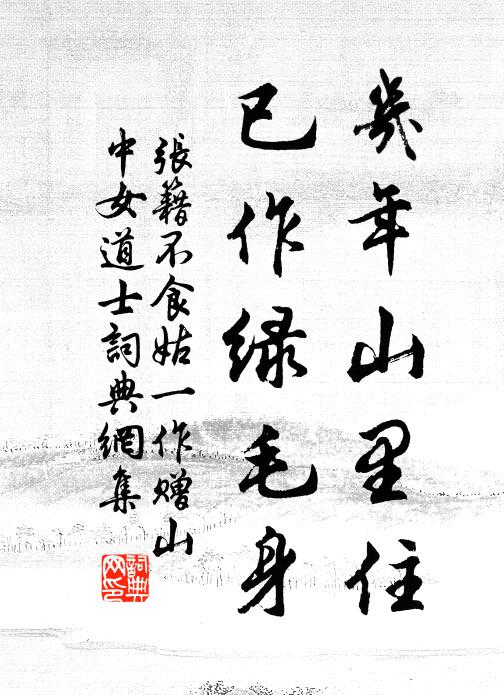 幾年山里住
已作綠毛身
張籍不食姑一作贈山
中女道士詞典網集
詞典網印